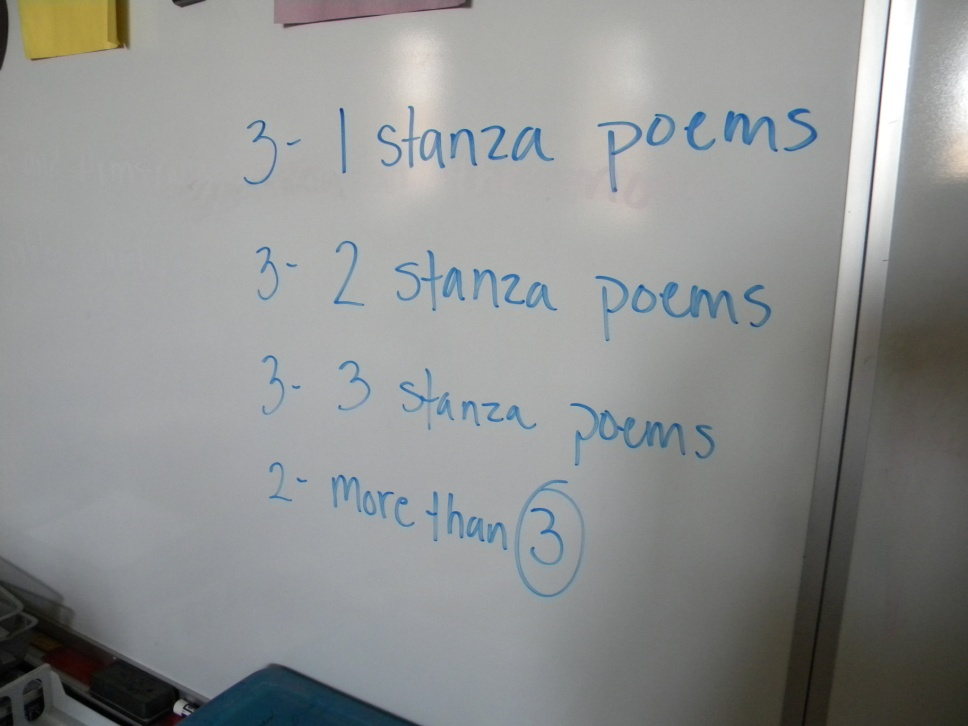 3- 1 stanza poems
3- 2 stanza poems
3- 3 stanza poems
2- more than 3